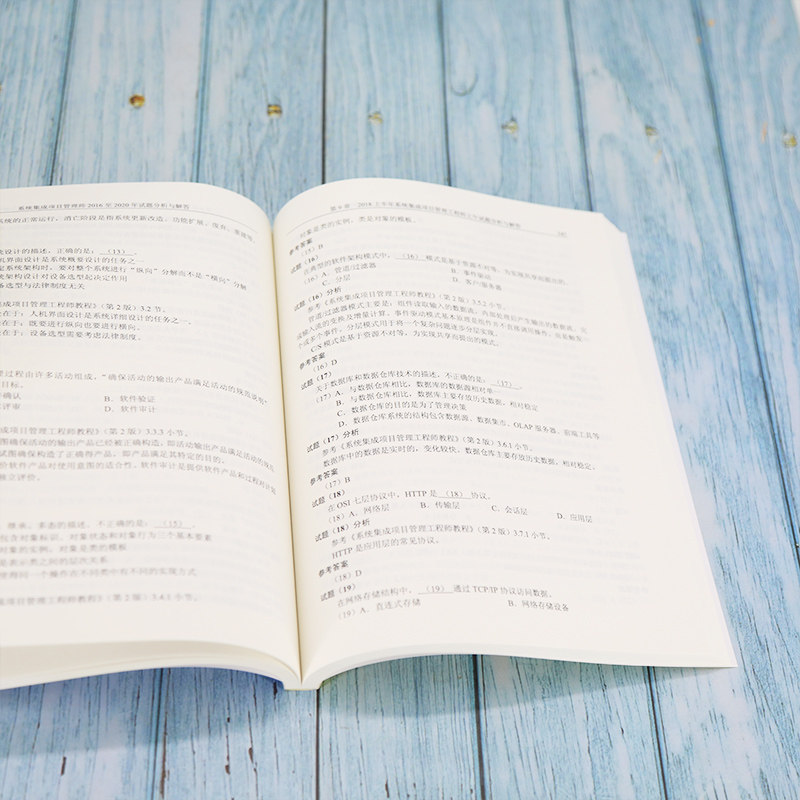 系统集成项目管理师 2016 至 2020 年试题分析与解答
系统的正常运行，消亡阶段是指系统更新改造、功能扩展、废弃、重建等。
系统设计的描述，正确的是：（13）。
机界面设计是系统概要设计的任务之一
系统架构时，要对整个系统进行“纵向”分解而不是“横向”分解
系统架构设计对设备选型起决定作用
备选型与法律制度无关
成项目管理工程师教程》（第 2 版）3.2 节。
在于：人机界面设计是系统详细设计的任务之一。
在于：既要进行纵向也要进行横向。
在于：设备选型需要考虑法律制度。
过程由许多活动组成，“确保活动的输出产品满足活动的规范说明”
目标。
确认 B. 软件验证
评审 D. 软件审计
成项目管理工程师教程》（第 2 版）3.3.3 小节。
试图确保活动的输出产品已经被正确构造，即活动输出产品满足活动的规范
试图确保构造了正确得产品，即产品满足其特定的目的。
价软件产品对使用意图的适合性。软件审计是提供软件产品和过程对计算
独立评价。
继承、多态的描述，不正确的是：（15）。
包含对象标识、对象状态和对象行为三个基本要素
对象的实例，对象是类的模板
是表示类之间的层次关系
使得同一个操作在不同类中有不同的实现方式
成项目管理工程师教程》（第 2 版）3.4.1 小节。
第 6 章 2018 上半年系统集成项目管理工程师上午试题分析与解答
对象是类的实例，类是对象的模板。
参考答案
（15）B
试题（16）
在典型的软件架构模式中，（16）模式是基于资源不对等，为实现共享而提出的。
（16）A．管道/过滤器 B．事件驱动
C．分层 D．客户/服务器
试题（16）分析
参考《系统集成项目管理工程师教程》（第 2 版）3.5.2 小节。
管道/过滤器模式主要是：组件读取输入的数据流，内部处理后产生输出的数据流，
成输入流的变换及增量计算。事件驱动模式基本原理是组件并不直接调用操作，而是触发一
个或多个事件。分层模式用于将一个复杂问题逐步分层实现。
C/S 模式是基于资源不对等，为实现共享而提出的模式。
参考答案
（16）D
试题（17）
关于数据库和数据仓库技术的描述，不正确的是：（17）。
（17）A．与数据仓库相比，数据库的数据源相对单一
B．与数据仓库相比，数据库主要存放历史数据，相对稳定
C．数据仓库的目的是为了管理决策
D．数据仓库系统的结构包含数据源、数据集市、OLAP 服务器、前端工具等
试题（17）分析
参考《系统集成项目管理工程师教程》（第 2 版）3.6.1 小节。
数据库中的数据是实时的，变化较快，数据仓库主要存放历史数据，相对稳定。
参考答案
（17）B
试题（18）
在 OSI 七层协议中，HTTP 是（18）协议。
（18）A．网络层 B．传输层 C．会话层 D．应用层
试题（18）分析
参考《系统集成项目管理工程师教程》（第 2 版）3.7.1 小节。
HTTP 是应用层的常见协议。
参考答案
（18）D
试题（19）
在网络存储结构中，（19）通过 TCP/IP 协议访问数据。
（19）A．直连式存储 B．网络存储设备